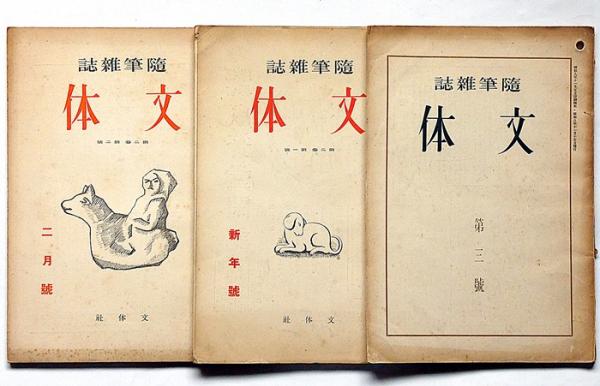 隨筆雜誌
文体
第二卷第二號
二月號
文体社
隨筆雜誌
文体
第二卷第一號
新年號
文体社
隨筆雜誌
文体
第三號